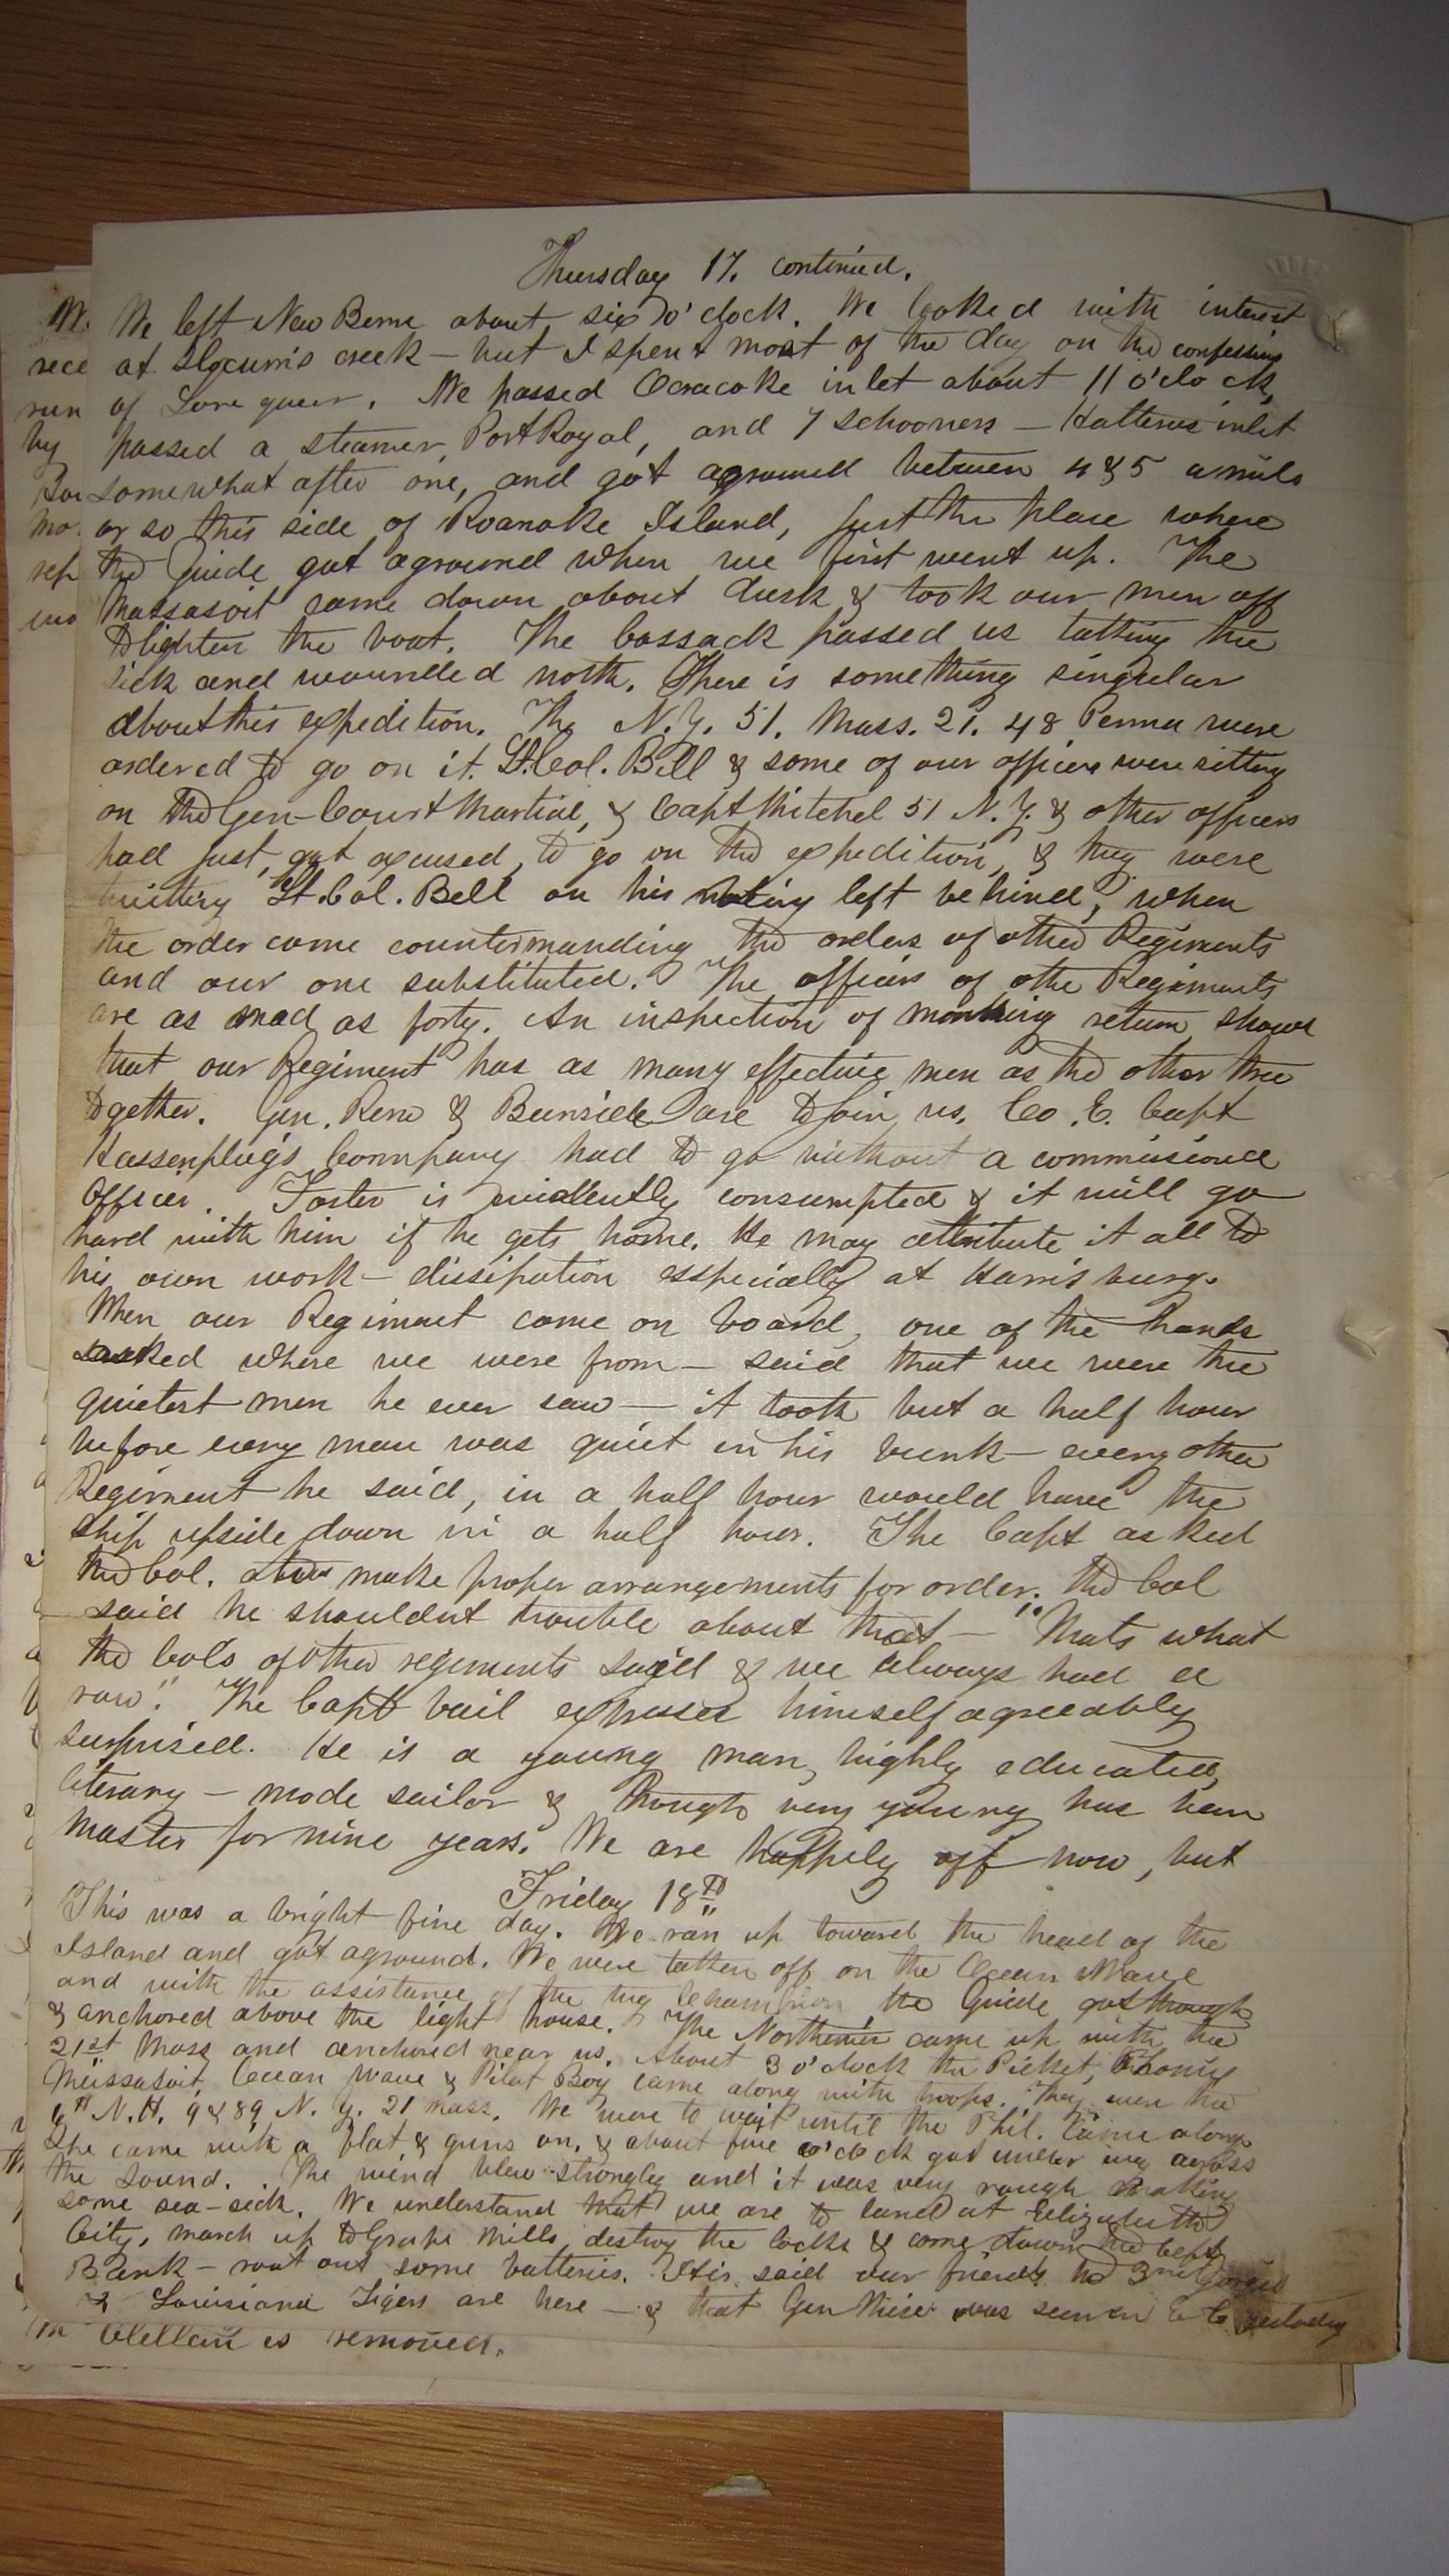 Thursday 17. continued.
We left New Berne about six o'clock. We looked with interest
at Slocum's creek — but I spent most of the day on the confessions
of . We passed Ocracoke inlet about 11 o'clock,
passed a steamer, Port Royal, and 7 schooners — Hatteras inlet
somewhat after one, and got aground between 4 & 5 a mile
or so this side of Roanoke Island, just the place where
the Guide got aground when we first went up. The
Massasoit came down about dusk & took our men off
to lighten the boat. The Cossack passed us taking the
sick and wounded north. There is something singular
about this expedition. The N.Y. 51. Mass. 21. 48 Penna were
ordered to go on it. Lt. Col. Bell & some of our officers were sitting
on the Gen-Court Martial, & Capt Mitchel 51 N.Y. & other officers
had just got excused, to go on the expedition, & they were
twitting Lt. Col. Bell on his being left behind, when
the order came countermanding the orders of other Regiments
and our one substituted. The officers of othe Regiments
are as mad as forty. An inspection of morning return shows
that our Regiment has as many effective men as the other three
together. Gen. Reno & Burnside are to join us. Co. E. Capt
Hassenplug's Company had to go without a commissioned
Officer. Foster is evidently consumpted & it will go
hard with him if he gets home. He may attribute it all to
his own work — dissipation esspecially at Harrisburg.
When our Regiment came on board, one of the hands
asked where we were from — said that we were the
quietest men he ever saw — it took but a half hour
before every man was quiet in his bunk — every other
Regiment he said, in a half hour would have the
ship upside down in a half hour. The Capt asked
the Col. to make proper arrangements for order. The Col
said he shouldnt trouble about that — "Thats what
the Cols of other regiments said & we always had a
row". The Capt Vail expresses himself agreeably
surprised. He is a young man, highly educated,
literary — mode sailor & though very young has been
Master for nine years. We are happily off now, but
Friday 18th
This was a bright fine day. We ran up toward the head of the
Island and got aground. We were taken off on the Ocean Wave
and with the assistance of the tug Champion, the Guide got through
& anchored above the light house. The Northerner came up with the
21st Mass and anchored near us. About 3 o'clock the Picket,
Massasoit, Ocean Wave & Pilot Boy came along with troops. They were the
6th N.H. 9 & 89 N.Y. 21 Mass. We were to wait until the Phil. came along
She came with a flat & guns on, & about five o'clock got under way across
the Sound. The wind blew strongly and it was very rough making
some sea-sick. We understand that we are to land at Elizabeth
City, march up to Grape Mills, destroy the locks & come down the left
Bank — rout out some batteries. It is said our friends the 3rd
& Louisiana Tigers are here — & that Gen Wise was seen in E.C. yesterday
McClellan is removed.